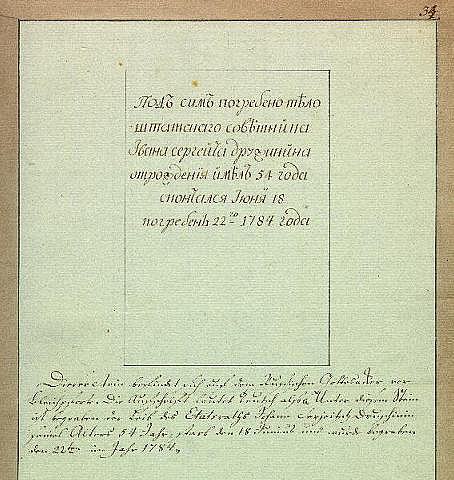 34
Подъ симъ погребено тѣло
штатскаго совѣтника
Ивана сергеича дружинина
отрождения имѣлъ 54 года
скончался Iюня 18
погребенъ 22го 1784 года
Dieser Stein befindet sich auf dem Gottesacker vor
Die Aufschrift lautet teutsch also: Unter diesem Stein
ist begraben der Leib des Etatsraths Johann Sergeitsch Druschinin
seines Alters 54 Jahr, starb den 18 Junius und wurde begraben
den 22ten im Jahr 1784.